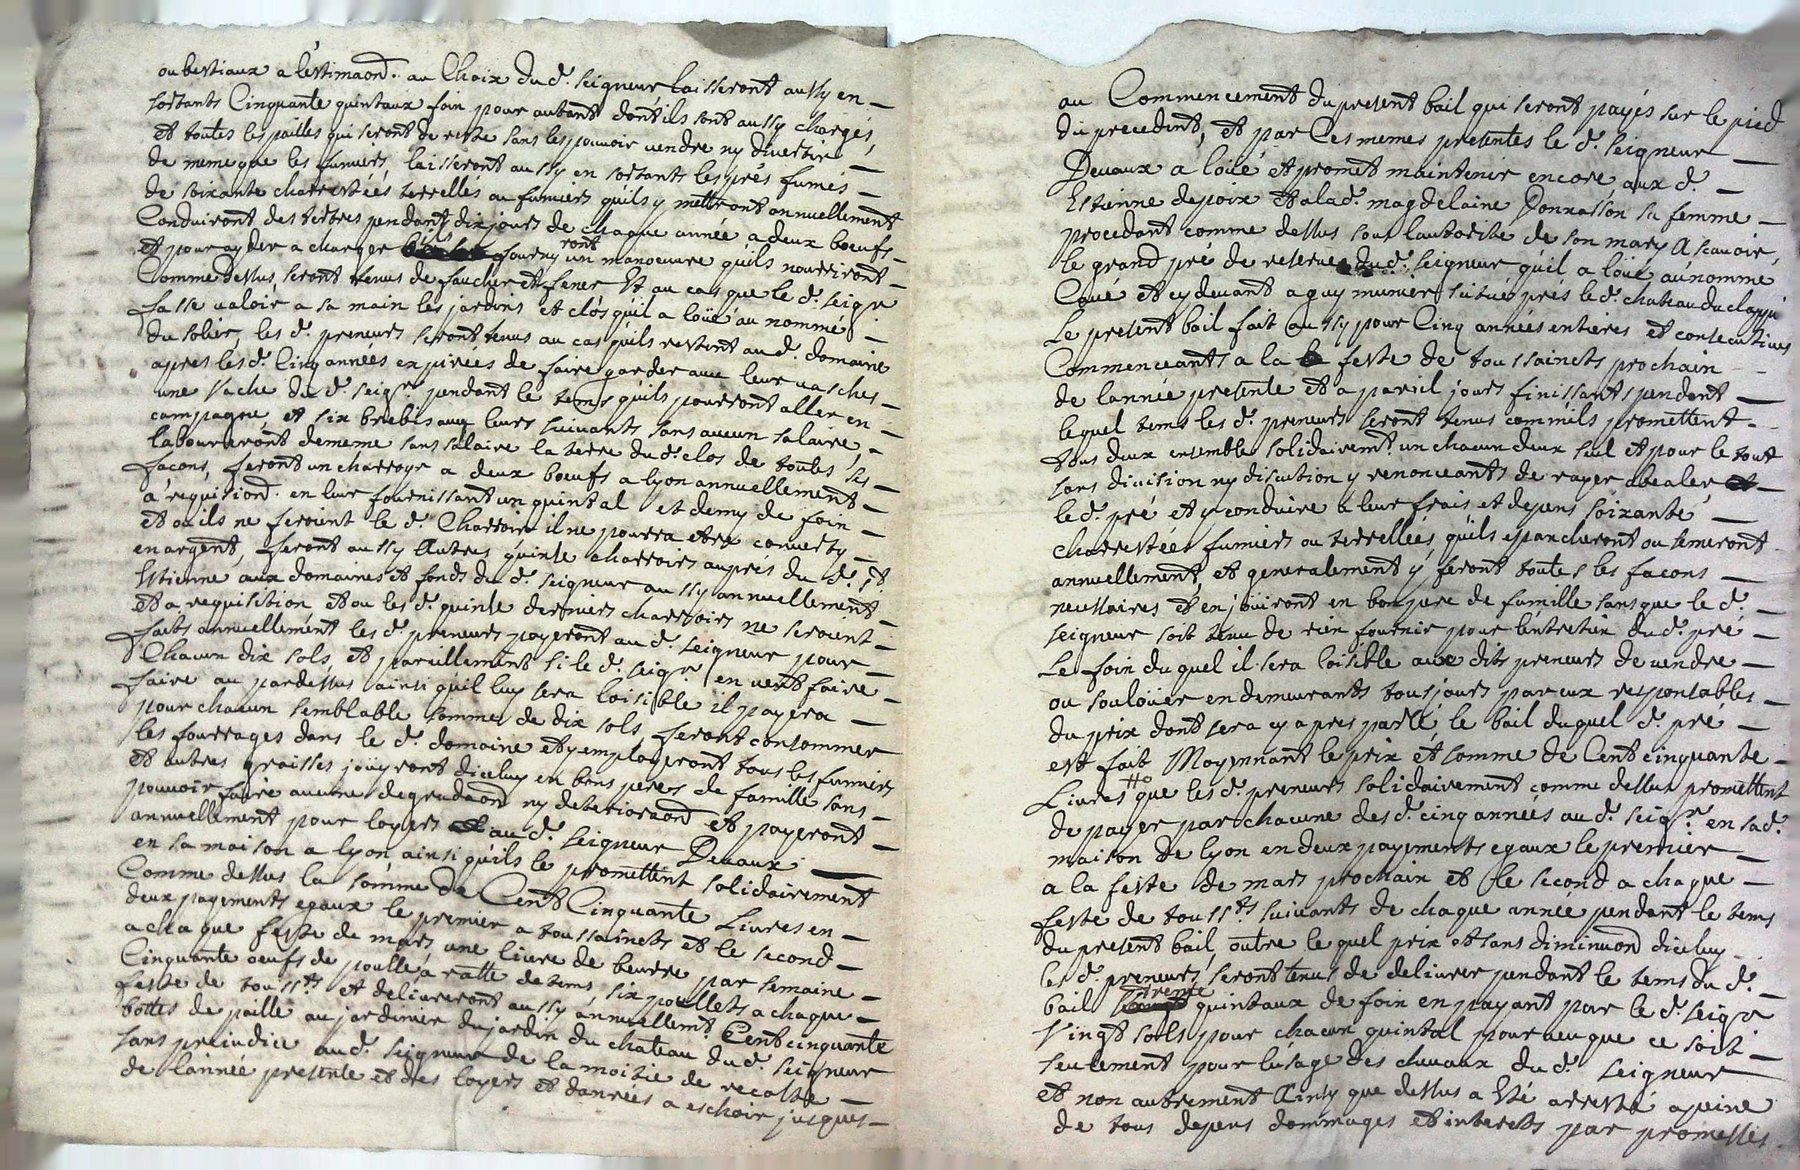 ou bestiaux a l'estimaon. au Choix du d. seigneur laisseront aussy en
sortants Cinquante quintaux foin pour autant dont ils sont aussy chargés,
et toutes les pailles qui seront de reste sans les pouvoir vendre ny divertir
de meme que les fumiers, laisseront aussy en sortants les prés fumés
de soixante charrestéés terrellés ou fumiers qu'ils y mettront annuellement
Conduiront des terres pendant dix jours de chaque année a deux boeufs
et pour ayder a charger fourny ront un manoeuvre qu'ils nourriront
Comme dessus, seront tenus de faucher et fener Et au cas que le d. seigr
fasse valoir a sa main les jardins et clos qu'il a loüé au nommé
du solier, les d. preneurs seront tenus au cas qu'ils restent au d. domaine
apres les d. Cinq années expirées de faire garder avec leur vaches
une vache du d. seigr. pendant le tems qu'ils pourront aller en
campagne, et six brebis avec leurs suivants sans aucun salaire,
laboureront de meme sans salaire la terre du d. clos de toutes ses
façons, feront un charroys a deux boeufs a lyon annuellement
a réquisiond. en leur fournissant un quintal et demy de foin
et ou ils ne feroient le d. Charroir il ne pourra etre converty
en argent, feront aussy autres quinse charroirs aupres du d. st
Estienne aux domaines et fonds du d. seigneur aussy annuellement
et a requisition et ou les d. quinse derniers charroirs ne seroient
faits annuellement les d. preneurs payeront au d. seigneur pour
Chacun dix sols, et pareillement si le d. seigr en veut faire
faire au pardessus ainsi qu'il luy sera loisible il payera
pour chacun semblable somme de dix sols, feront consommer
les fourrages dans le d. domaine et y employeront tous les fumiers
et autres graisses joüyront diceluy en bons peres de famille sans
pouvoir faire aucune degradaon ny deterioraon et payeront
annuellement pour loyers au d. seigneur Devaux
en sa maison a lyon ainsi qu'ils le promettent solidairement
Comme dessus la somme de Cent Cinquante Livres en
deux payements egaux le premier a toussainets et le second
a chaque feste de mars une livre de beurre par semaine
Cinquante oeufs de poulle a ratte de tems six poullets a chaque
feste de touss.ts et delivreront aussy annuellemt. Cent cinquante
bottes de paille au jardinier du jardin du chateau du d. seigneur
sans prejudice au d. seigneur de la moitie de recolte
de l'année presente et des loyers et danrées a eschoir jusques
au Commencement du present bail qui seront payés sur le pied
du precedent, et par Ces memes presentes le d. seigneur
Devaux a loüé et promet maintenir encore aux d.
Estienne depoix et a la d. magdelaine Donnasson sa femme
procedant comme dessus sous lautorite de son mary a scavoir,
le grand pré de reserve du d. seigneur quil a loüé au nommé
Coué et cy devant a guy munier situé prés le d. chateau du clapy
Le present bail fait aussy pour Cinq années entieres et consecutives
Commenceants a la feste de toussainets prochain
de lannée presente et a pareil jours finissants pendant
lequel tems les d. preneurs seront tenus comm'ils promettent
tous deux ensemble solidairemt. un chacun deux seul et pour le tout
sans division ny discution y renonceants de rayer abealer
le d. pré et y conduire a leur frais et depens soixante
charrestéés fumiers ou terrellées qu'ils eparcheront ou semeront
annuellement, et generalement y feront toutes les facons
necessaires et en joüiront en bon pere de famille sans que le d.
seigneur soit tenu de rien fournir pour l'entretien du d. pré
Le foin du quel il sera loisible aux dits preneurs de vendre
ou souloüer en demeurants tousjours par eux responsables
du prix dont sera cy apres parlé le bail duquel d. pré
est fait Moyennant le prix et somme de Cent cinquante
Livres que les d. preneurs solidairement comme dessus promettent
de payer par chacune des d. cinq années au d. seigr. en sa d.
maison de lyon en deux payements egaux le premier
a la feste de mars prochain et le second a chaque
feste de touss.ts suivants de chaque année pendant le tems
du present bail, outre le quel prix et sans diminuon diceluy
les d. preneurs, seront tenus de delivrer pendant le tems du d.
bail trente quintaux de foin en payant par le d. seigr
Vingt sols pour chacun quintal pourveu que ce soit
seulement pour lusage des chevaux du d. seigneur
et non autrement Ainsy que dessus a été arresté a peine
de tous depens dommages et interets par promesses